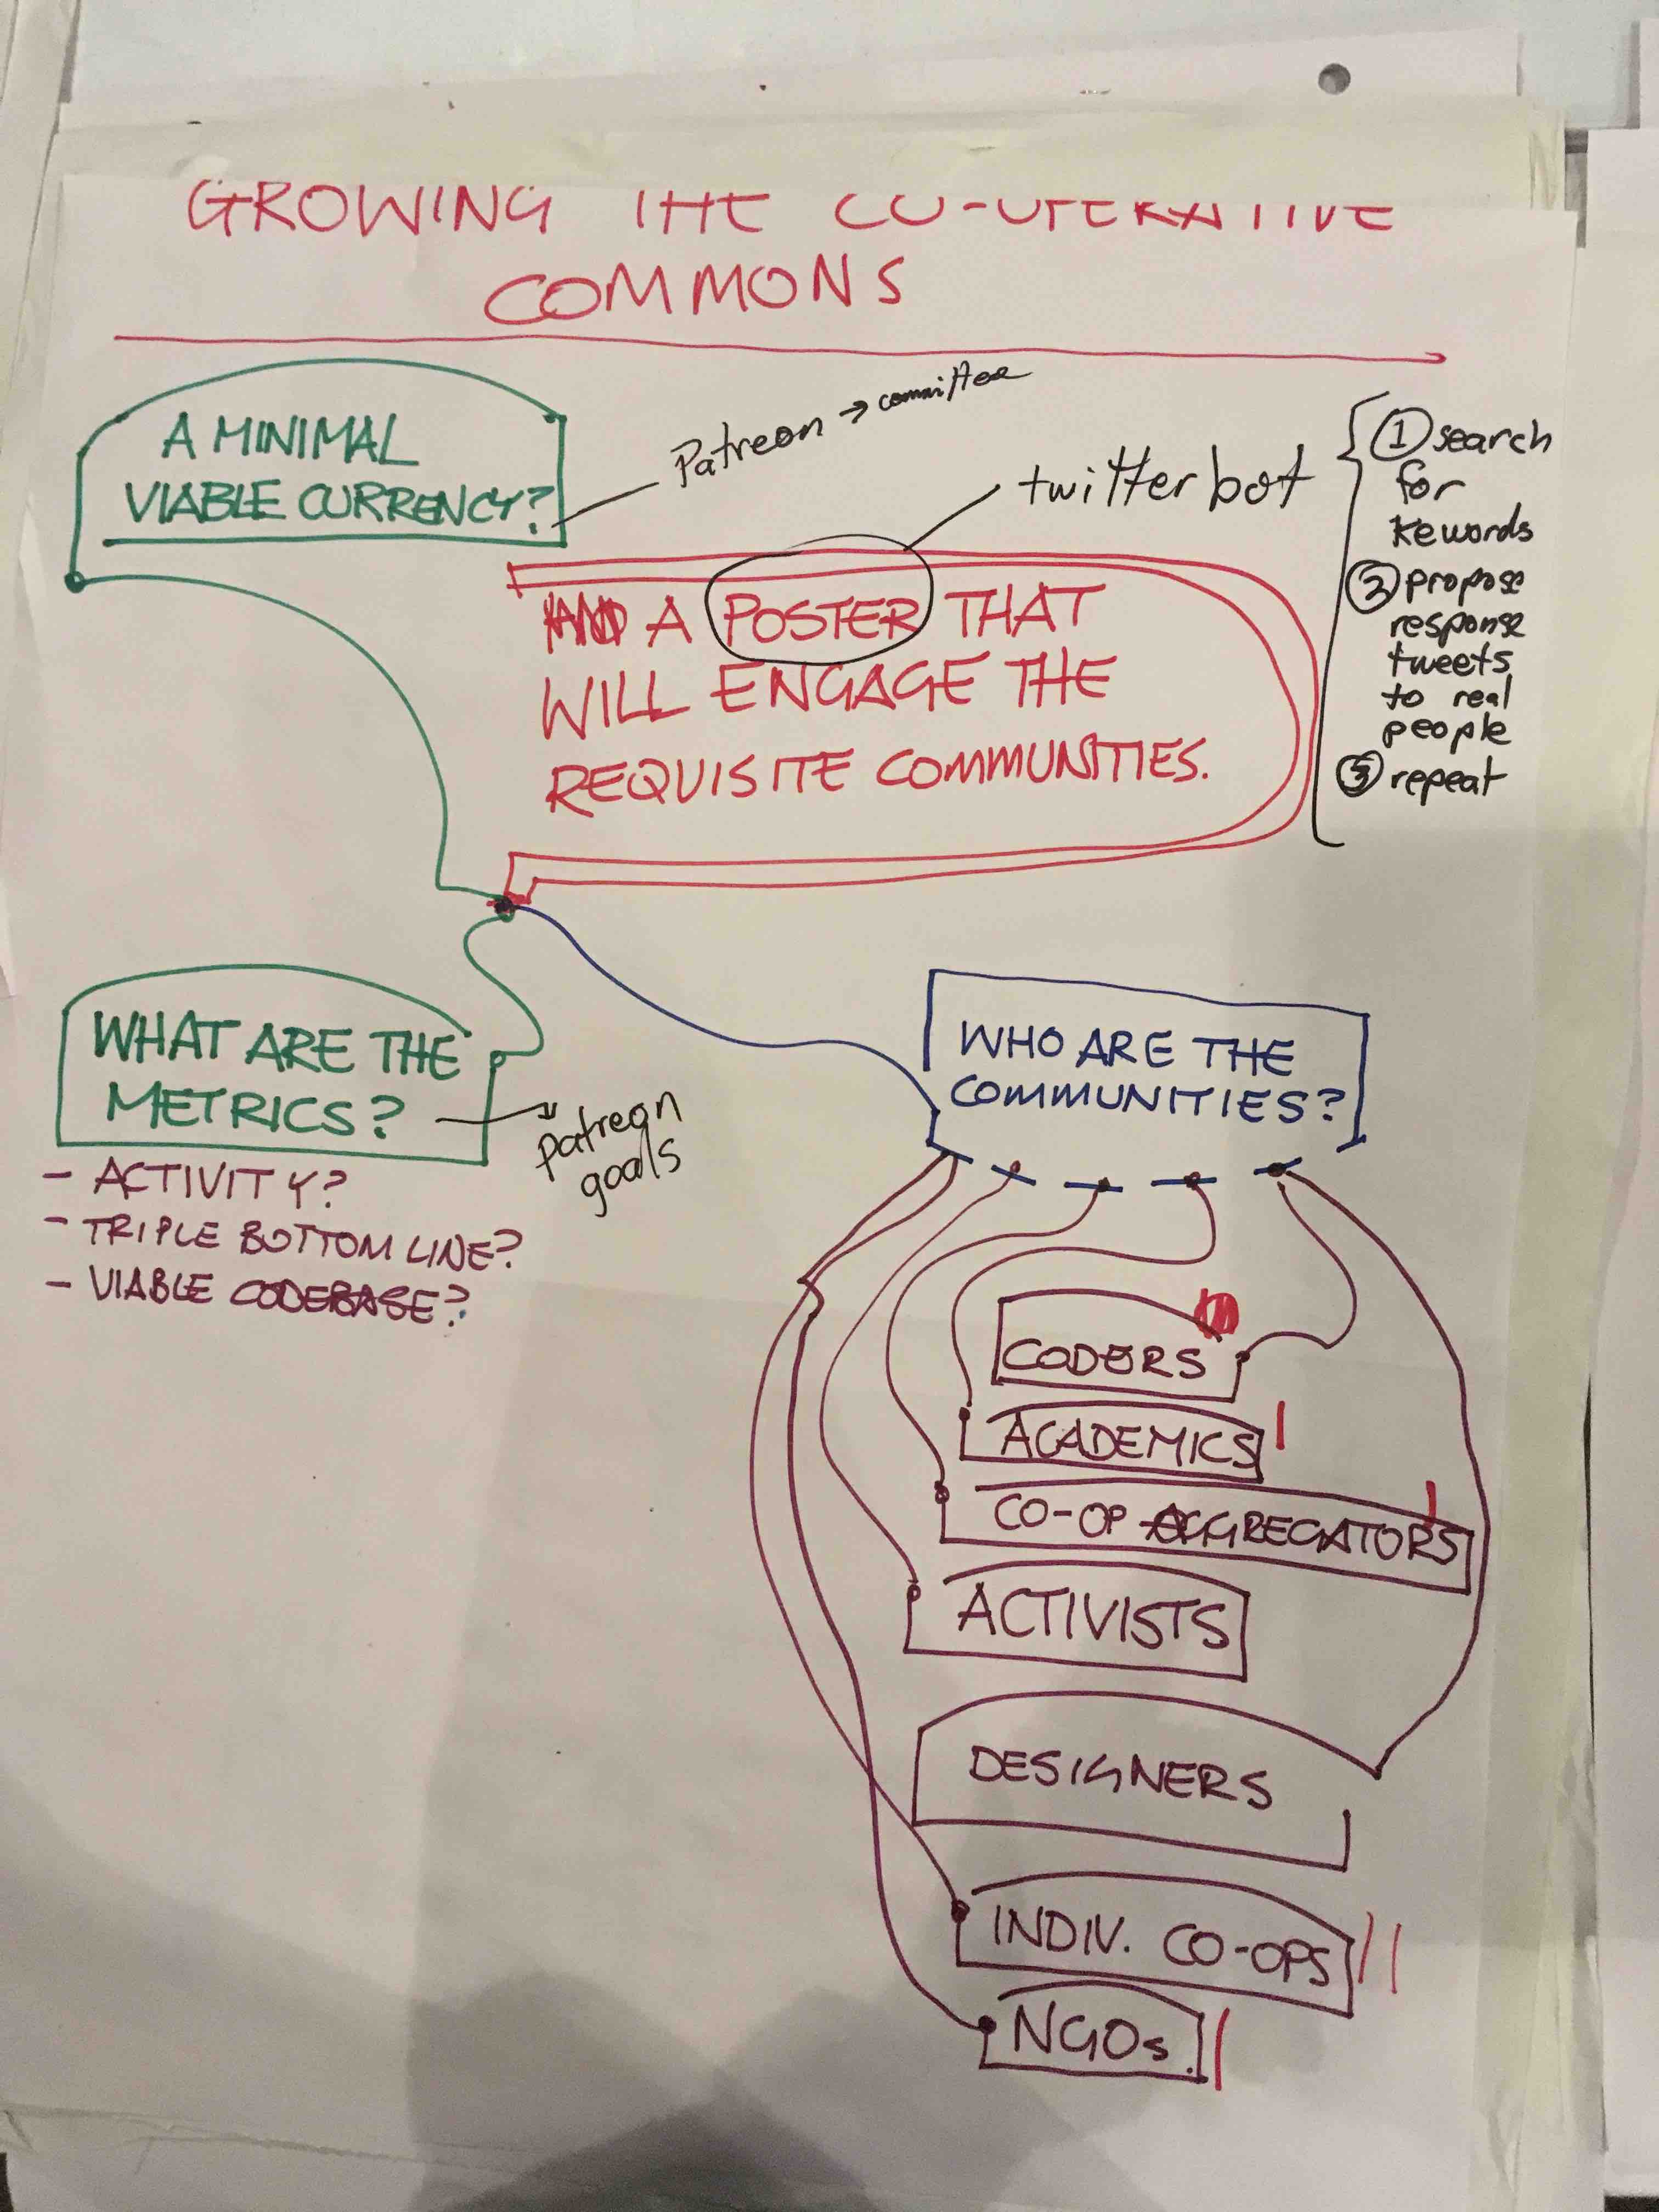 GROWING THE CO-OPERATIVE
COMMONS
A MINIMAL
VIABLE CURRENCY?
Patreon → committee
twitter bot
① search
for
kewords
② propose
response
tweets
to real
people
③ repeat
AND A POSTER THAT
WILL ENGAGE THE
REQUISITE COMMUNITIES.
WHAT ARE THE
METRICS?
patreon
goals
- ACTIVITY?
- TRIPLE BOTTOM LINE?
- VIABLE CODEBASE?
WHO ARE THE
COMMUNITIES?
CODERS
ACADEMICS
CO-OP AGGREGATORS
ACTIVISTS
DESIGNERS
INDIV. CO-OPS
NGOs